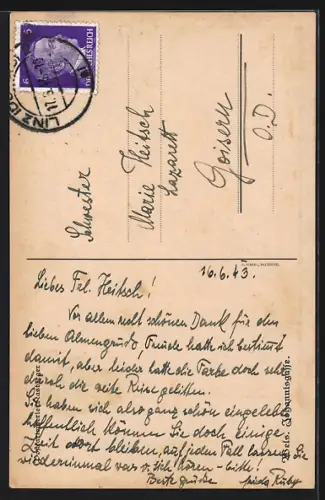 6 6
DEUTSCHES REICH
LINZ (D
Schwester
Marie Heitsch
Lazarett
Goisern
O.D.
16.6.43.
Liebes Frl. Heitsch!
Vor allem recht schönen Dank für den
lieben Almengruß, Freude hatte ich bestimmt
damit, aber leider hatte die Farbe doch sehr
durch die weite Reise gelitten.
haben sich also ganz schön eingelebt
hoffentlich können Sie doch einige
Zeit dort bleiben, auf jeden Fall lassen Sie
wiedereinmal was v. sich hören - bitte!
Beste Grüße
Wels, Johannisgasse.